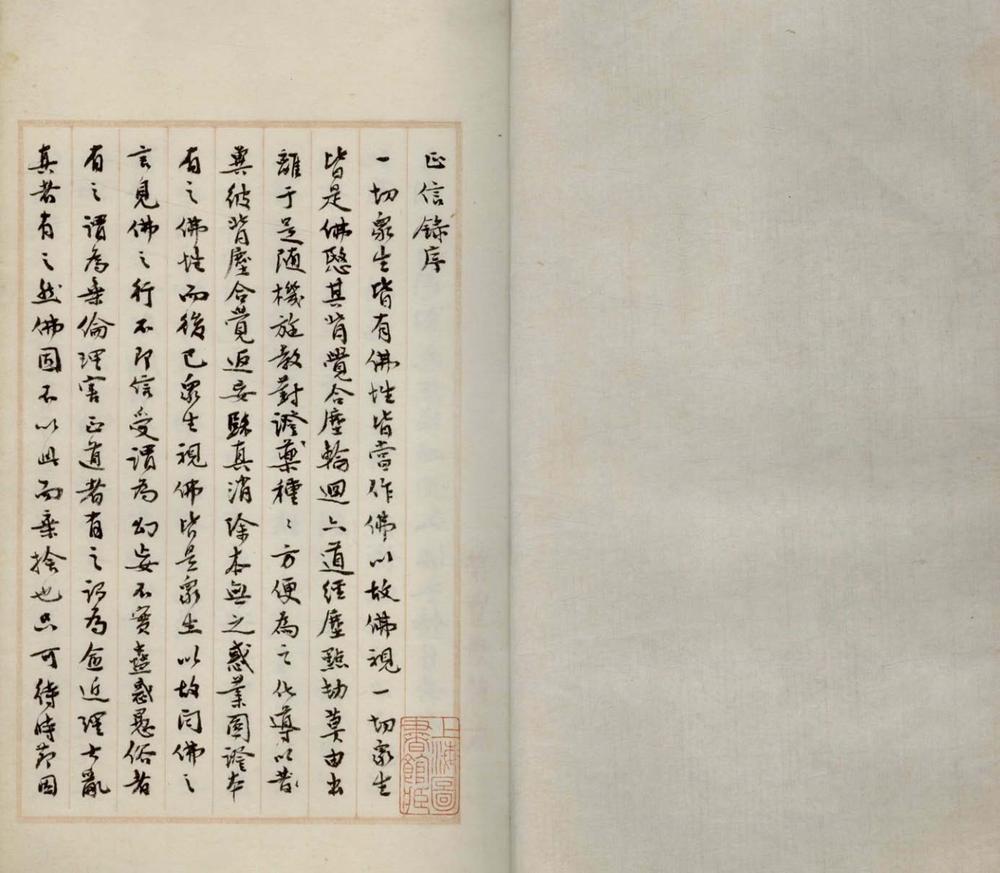 正信錄序
一切眾生皆有佛性皆當作佛以故佛視一切眾生
皆是佛愍其背覺合塵輪迴六道經塵點劫莫由出
離于是隨機施教對證藥種種方便為之化導以蘄
冀彼背塵合覺返妄歸真消除本無之惑業圓證本
有之佛性而後已眾生視佛皆是眾生以故聞佛之
言見佛之行不即信受謂為幻妄不實蠱惑愚俗者
有之謂為棄倫理害正道者有之謂為愈近理大亂
真者有之然佛固不以此而棄捨也只可待時節因
上海圖書館藏